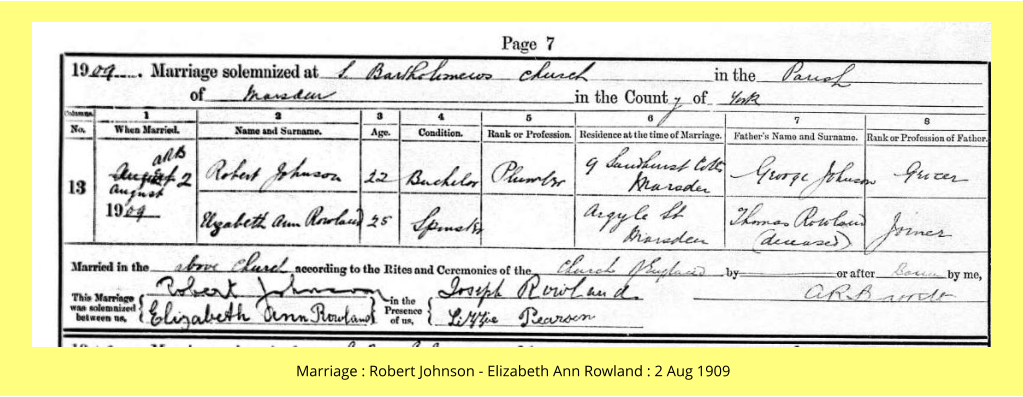 Page 7
1909. Marriage solemnized at S. Bartholomews Church in the Parish
of Marsden in the County of York
Columns. 1 2 3 4 5 6 7 8
No. When Married. Name and Surname. Age. Condition. Rank or Profession. Residence at the time of Marriage. Father's Name and Surname. Rank or Profession of Father.
13 ARB August 2 August 1909
Robert Johnson 22 Bachelor Plumber 9 Sandhurst Cotts Marsden George Johnson Grocer
Elizabeth Ann Rowland 25 Spinster Argyle St Marsden Thomas Rowland (deceased) Joiner
Married in the above Church according to the Rites and Ceremonies of the Church of England by or after Banns by me,
This Marriage was solemnized between us, Robert Johnson Elizabeth Ann Rowland in the Presence of us, Joseph Rowland Lizzie Pearson A.R.
Marriage : Robert Johnson - Elizabeth Ann Rowland : 2 Aug 1909